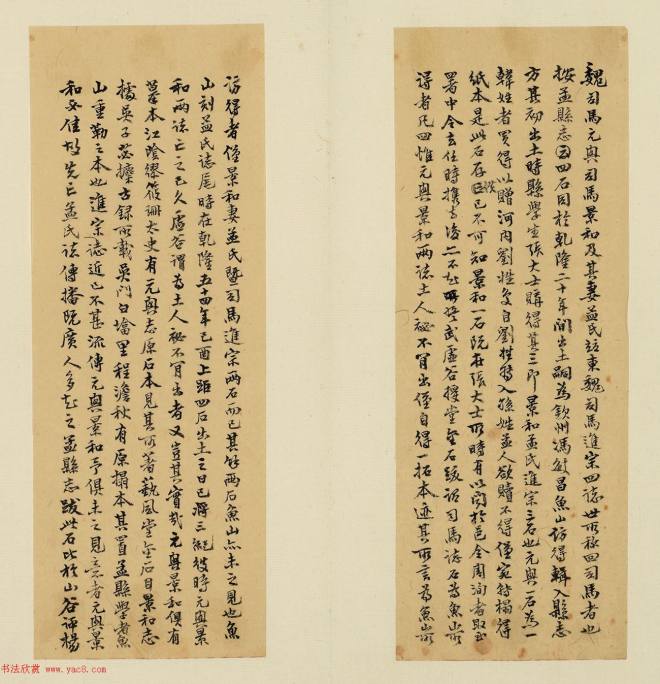 魏司馬元興司馬景和及其妻孟氏誌東魏司馬進宗四誌世所稱四司馬者也
按孟縣志四石同於乾隆二十年間出土嗣為欽州馮敏昌魚山訪得輯入縣志
方其初出土時縣學生張大士購得其三即景和孟氏進宗三石也元興一石為一
韓姓者買得以贈河內劉姓及自劉姓轉入孫姓孟人欲贖不得僅宛轉搨得
紙本是此石存佚已不可知景和一石既在張大士所時有以聞於邑令周洵者取至
署中令去任時携去後亦不知所終武虛谷授堂金石跋謂司馬誌石為魚山所
得者凡四惟元興景和兩誌土人祕不肯出僅自得一拓本迹其所言為魚山所
訪得者僅景和妻孟氏暨司馬進宗兩石而已其餘兩石魚山亦未之見也魚
山刻孟氏誌尾時在乾隆五十四年己酉上距四石出土之日已將三紀彼時元興景
和兩誌亡之已久虛谷謂為土人祕不肯出者又豈其實哉元興景和俱有
摹本江陰繆筱珊太史有元興志原石本見其所著藝風堂金石目景和志
據吳子苾攈古錄所載吳門白墖里程澹秋有原搨本其置孟縣學者魚
山重勒之本也進宗誌近已不甚流傳元興景和予俱未之見意者元興景
和文佳故先亡孟氏誌傳播既廣人多知之孟縣志跋此石比於山谷評楊
书法欣赏 www.yac8.com